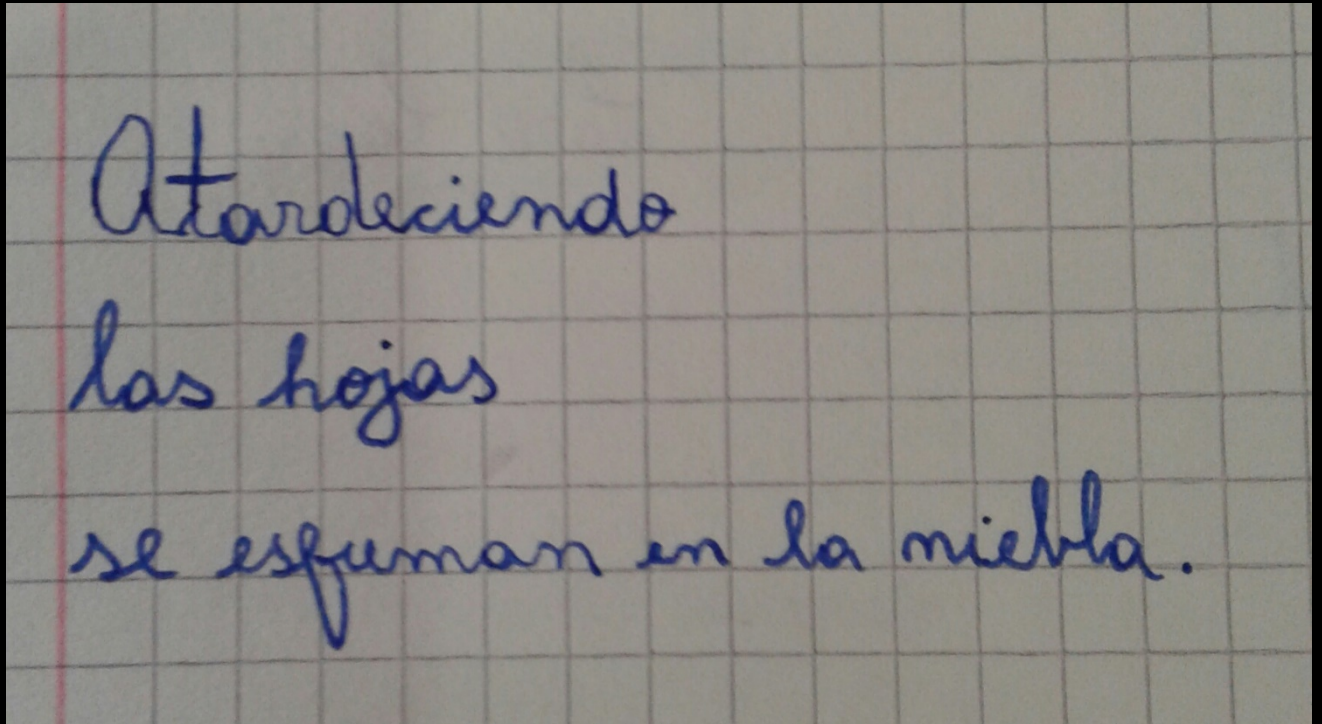 Atardeciendo
las hojas
se esfuman en la niebla.